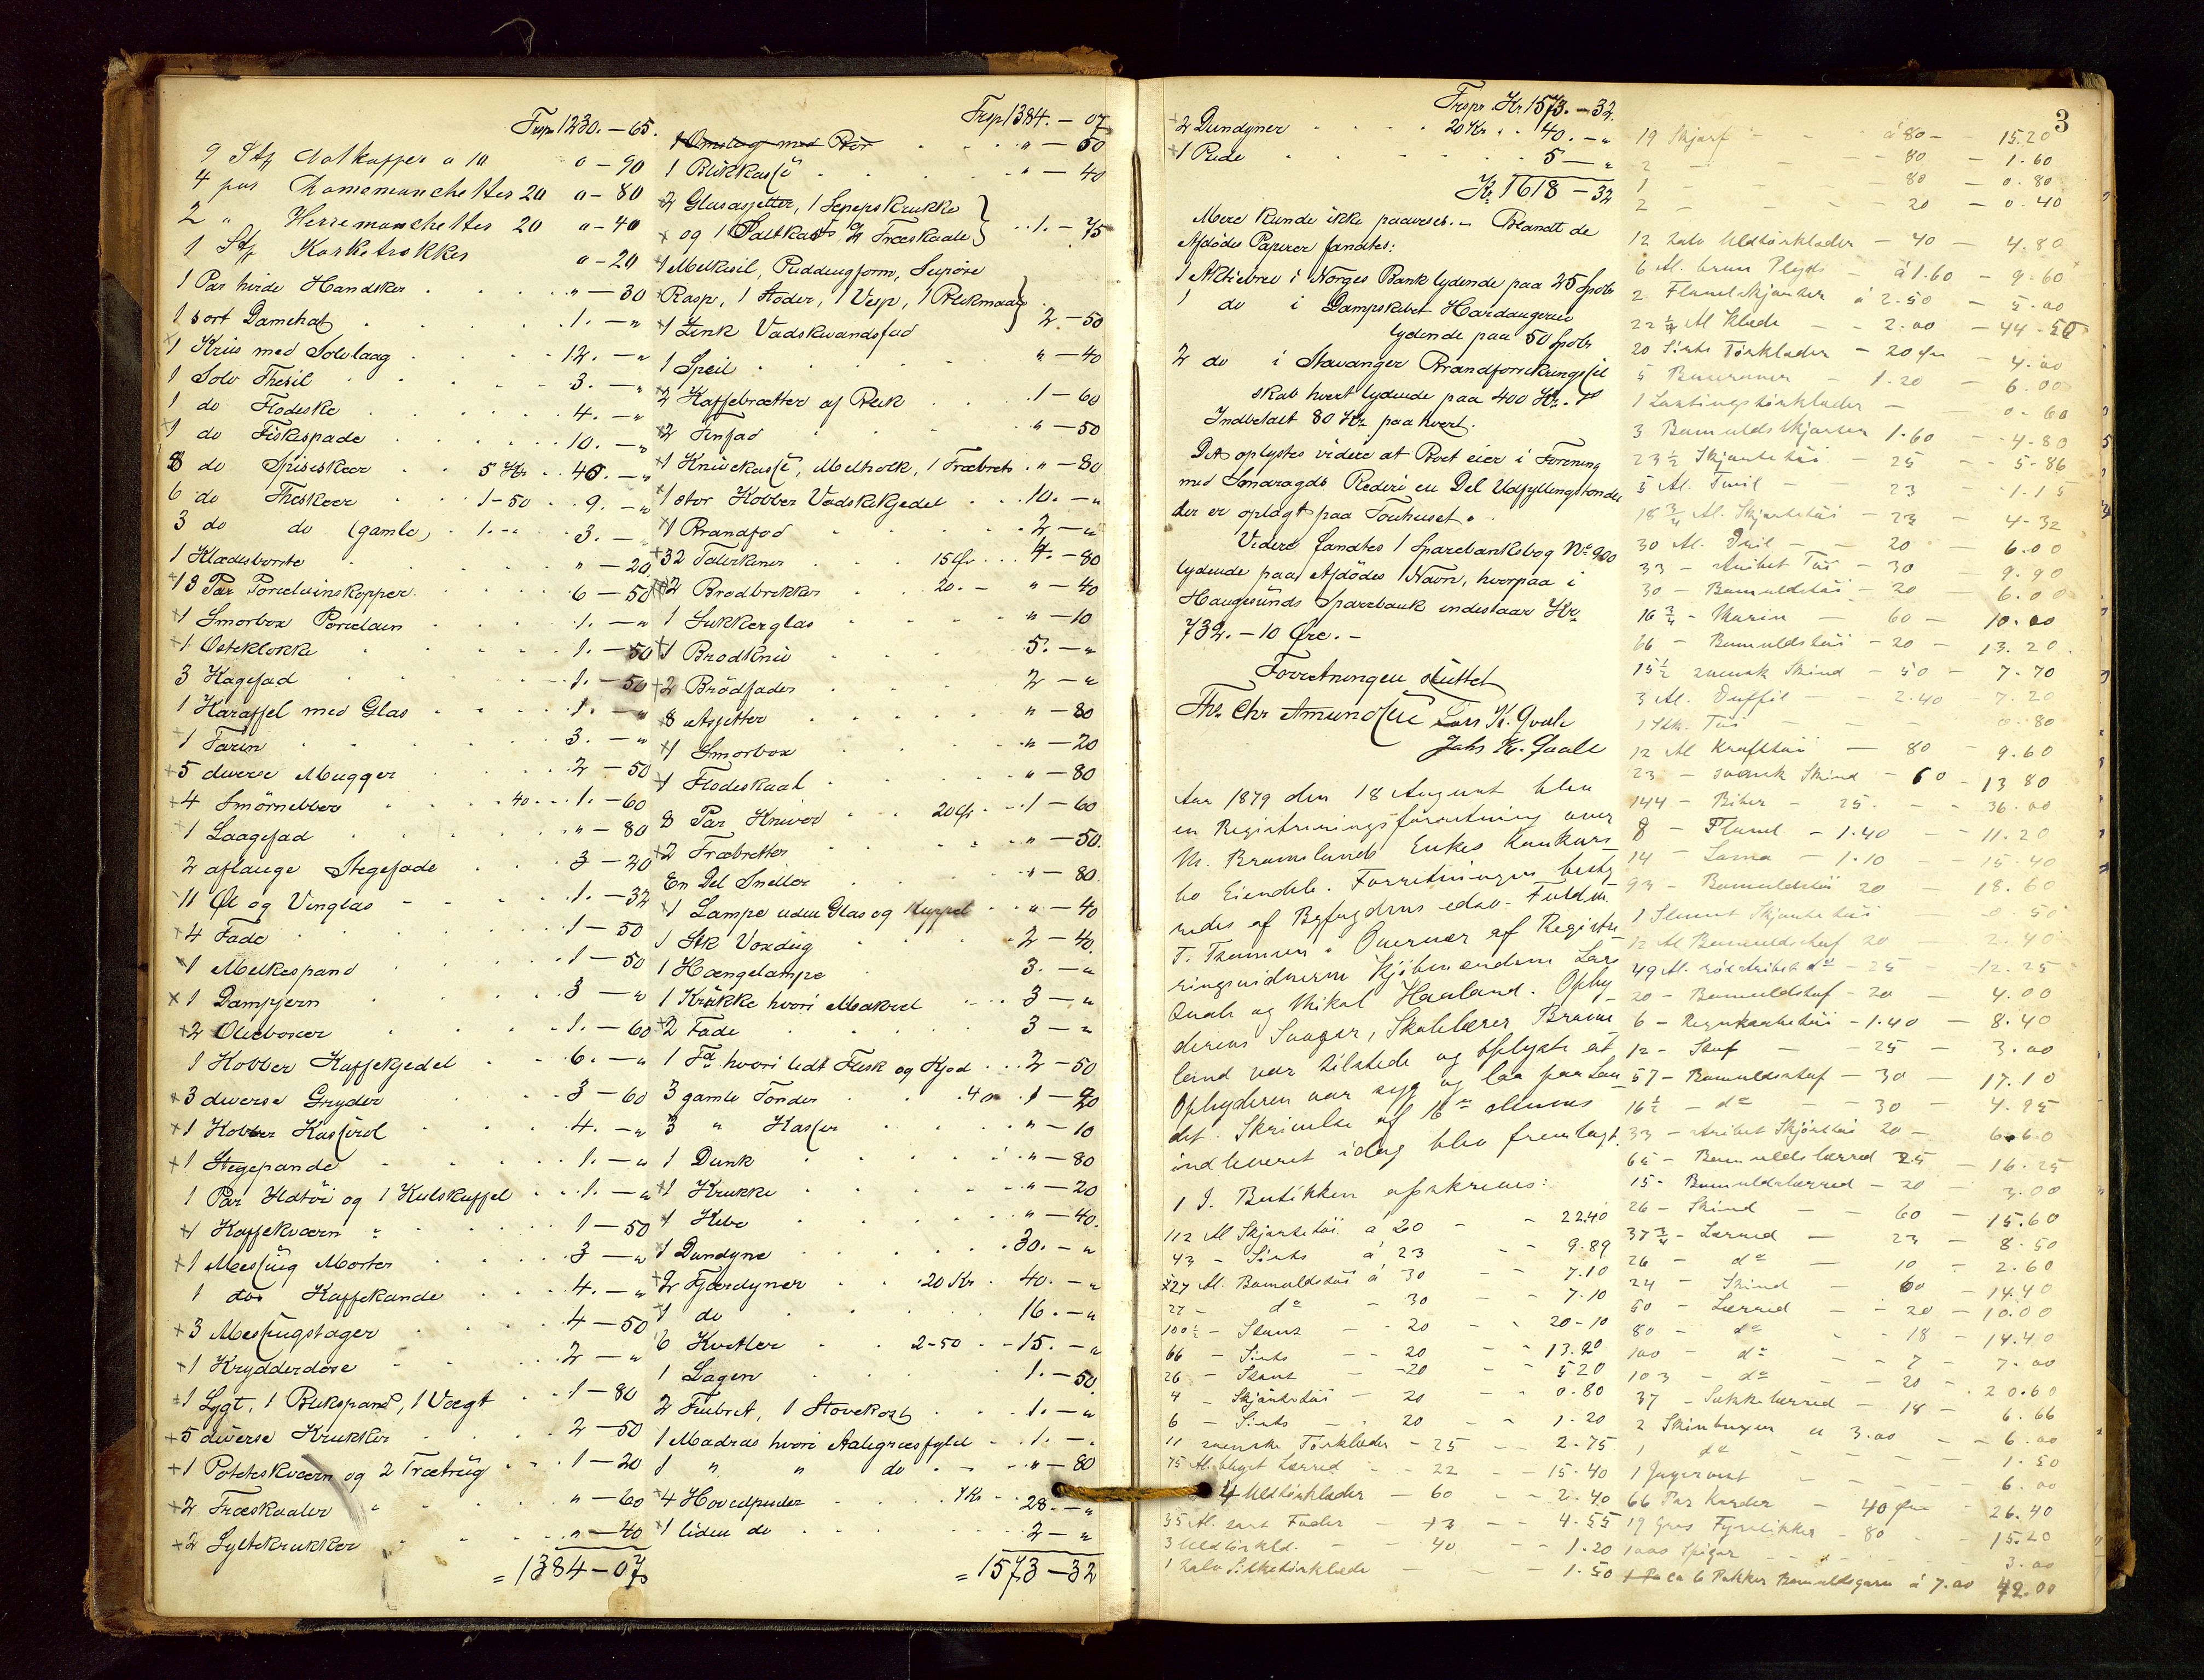 Trsp 1230.-65.
9 Stk Natkapper a 10 0-90
4 par Damemanchetter 20 0-80
2 " Herremanchetter 20 0-40
1 Stk Korketrækker 0-20
1 Par hvide Handsker " - 30
1 sort Damehat 1. - "
1 Krus med Sølvlaag 12. - "
1 Sølv Thesil 3. - "
1 do Flødeske 4. - "
1 do Fiskespade 10. - "
8 do Spiseskeer 5 Kr 40. - "
6 do Theskeer 1-50 9. - "
3 do do (gamle) 1.- 3. - "
1 Klædesbørste " - 20
13 Par Porcelainskopper 6 - 50
1 Smørbox Porcelain 1. - "
1 Osteklokke 1. - 50
3 Kagefad 1. - 50
1 Karaffel med Glas 1. - "
1 Tarin 3. - "
5 diverse Mugger 2 - 50
4 Smørnebber 40 1. - 60
1 Laagefad " - 80
2 aflange Stegefade 3 - 20
11 Øl og Vinglas 1. - 32
4 Fade 1 - 50
1 Melkespand 1 - 50
1 Dampjern 3 - "
2 Olieboxer 1. - 60
1 Kobber Kaffekjedel 6. - "
3 diverse Gryder 3 - 60
1 Kobber Kasserol 4. - "
1 Stegepande 1. - "
1 Par Ildtöi og 1 Kulskuffel 1. - "
1 Kaffekværn 1 - 50
1 Messing Morter 3 - "
1 do Kaffekande 4. - "
3 Messingstager 4 - 50
1 Krydderdose 2 - "
1 Lygt, 1 Blikspand, 1 Vægt 1 - 80
5 diverse Krukker 2 - 50
1 Potetskværn og 2 Trætrug 1 - 20
2 Træskaaler " - 60
2 Syltekrukker " - 40
= 1384 - 07
Trsp 1384. - 07
1 Omslag med Rør " - 50
1 Blikkasse " - 40
2 Glasassjetter, 1 Sepepskrukke
og 1 Saltkar og Træskaale 1. - 75
1 Melkesil, Puddingform, Supøse
Rasp, 1 Støder, 1 Visp, 1 Blikmaal 2 - 50
1 Zink Vadskevandsfad
1 Speil " - 40
2 Kaffebrætter af Blik 1 - 60
2 Tinfad " - 50
1 Knivekasse, Melholk, 1 Træbret " - 80
1 stor Kobber Vadskekjedel 10. - "
1 Brandfod 2 - "
32 Talerkener 15 Ør 4. - 80
2 Brødbrikker 20. - " - 40
1 Sukkerglas " - 10
1 Brødkniv 5. - "
2 Brödfader 2 - "
8 Assjetter " - 80
1 Smørbox " - 20
1 Flødeskaal " - 80
8 Par Kniver 20 Ør 1 - 60
2 Træbretter " - 50.
En Del Sneller " - 80.
1 Lampe uden Glas og Kuppel " - 40
1 Stk Voxdug 2 - 40.
1 Hængelampe 3. - "
1 Krukke hvori Makrel 3 - "
2 Fade 3 - "
1 Fd hvori lidt Flesk og Kjød 2 - 50
3 gamle Tønder 40 1 - 20
3 " Kasser " - 10
1 Dunk " - 80
1 Krukke " - 20
1 Kibe " - 40.
1 Dundyne 30. - "
2 Fjærdyner 20 Kr 40. - "
1 do 16. - "
6 Kvitler 2-50 15. - "
1 Lagen 1. - 50
2 Fiebret, 1 Stovekost 1. - "
1 Madras hvori Aalegræsfyld 1. - "
1 " " do " - 80
4 Hovedpuder 7 Kr 28. - "
1 liden do 2 - "
= 1573 - 32
Trspr. Kr 1573. - 32.
2 Dundyner 20 Kr 40. - "
1 Pude 5 - "
Kr 1618 - 32
Mere kunde ikke paavises. - Blandt de
Afdødes Papirer fandtes:
1 Aktiebrev i Norges Bank lydende paa 25 Spdlr
1 do i Dampskibet Hardangeren
lydende paa 50 Spdlr
2 do i Stavanger Brandforsikringssel
skab hvert lydende paa 400 Kr.
Indbetalt 80 Kr paa hvert.
Det oplystes videre at Boet eier i Forening
med Smaragds Rederi en Del Udfyllingstønder
der er oplagt paa Touhuset.
Videre fandtes 1 Sparebanksbog No 900
lydende paa Afdødes Navn, hvorpaa i
Haugesunds Sparebank indestaar Kr
732. - 10 Øre. -
Forretningen sluttet
Ths. Chr Amundsen Lars K. Qvale
Jahs K. Qvale
Aar 1879 den 18 August blev
en Registreringsforretning over
M. Bramslands Enkes Konkurs
bo Eiendele. Forretningen besty
redes af Byfogdens edsv. Fuldm.
T. Thomsen i Overvær af Registre
ringsvidnerne Kjöbmændene Lars
Qvale og Mikal Haaland. Ophy
derens Svoger, Skolelærer Brams
land var tilstede og oplyste at
Ophyderen var syg og laa paa Lan
det. Skrivelse af 16de dennes
indleveret idag blev fremlagt.
1 I. Butikken opskrives:
112 Al Skjortetöi a 20 22.40
43 - Sirts á 23 9.89
27 Al. Bomuldstöi á 30 7.10
27 - do - 30 7.10
100½ - Stout - 20 20-10
66 - Sirts - 20 13.20
26 - Stout - 20 5 20
4 - Skjörtetöi - 20 0.80
6 - Sirts - 20 1.20
11 svenske Törklæder - 25 2.75
75 Al. bleget Lærred 22 15.40
4 Uldtörklæder - 60 2.40
35 Al. sort Foder - 13 4.55
3 Uldtörkl. 40 1.20
1 halv Silketörklæde 1.50
3
19 Skjærf á 80 - 15.20
2 - 80 - 1.60
1 - 80 - 0.80
2 - 20 - 0.40
12 halv Uldtörklæder - 40 - 4.80
6 Al. brun Plyds - á 1.60 - 9.60
2 Flanelskjorter á 2.50 - 5.00
22¼ Al Klæde - 2.00 - 44-50
20 Sirts Törklæder - 20 Øre - 4.00
5 - 1.20 - 6.00
1 Lastingstörklæder - 0.60
3 Bomuldskjorter 1.60 - 4.80
23½ Skjortetöi - 25 - 5-86
5 Al. Tvil - 23 - 1.15
18¾ Al. Skjortetöi - 23 - 4-32
30 Al. Dvil - 20 - 6.00
33 - stribet Töi - 30 - 9.90
30 - Bomuldstöi - 20 - 6.00
16¾ - Marin - 60 - 10.00
66 - Bomuldstöi - 20 - 13.20
15½ svensk Skind - 50 - 7.70
3 Al. Duffel - 2.40 7.20
1 Stk. Töi 0.80
12 Al Krafttöi - 80 - 9.60
23 - svensk Skind - 60 - 13 80
144 - Biber - 25. - 36.00
8 - Flanel - 1.40 - 11.20
14 - Lama - 1.10 - 15.40
93 - Bomuldstöi 20 - 18.60
1 Stump Skjortetöi - 0 50
12 Al Bomuldstuf 20 - 2.40
49 Al. rödstribet do - 25 - 12.25
20 - Bomuldstuf - 20 - 4.00
6 - Regnkaabetöi - 1.40 - 8.40
12 - Stuf - 25 - 3.00
57 - Bomuldstuf - 30 - 17.10
16½ - do - 30 - 4.95
33 - stribet Skjörttöi 20 - 6.60
65 - Bomuldslærred 25 - 16.25
15 - Bomuldslærred - 20 - 3.00
26 - Skind - 60 - 15.60
37¾ - Lærred - 23 - 8.50
26 - do - 10 - 2.60
24 - Skind - 60 - 14.40
50 - Lærred - 20 - 10.00
80 - do - 18 - 14.40
100 - do - 7 - 7.00
103 - do - 20 - 20.60
37 - Sækkelærred - 18 - 6.66
2 Skinbuxer a 3.00 - 6.00
1 do - 1.50
1 Jagervest - 6.00
66 Par Karder - 40 Øre - 26.40
19 Gros Fyrstikker - 80 - 15.20
1000 Spiger - 3.00
ca 6 Pakker Bomuldsgarn á 7.00 42.00